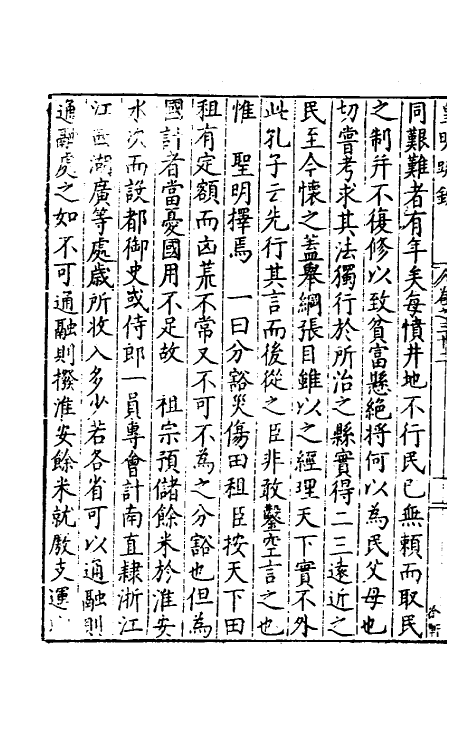 皇明疏鈔
同艱難者有年矣每憤井地不行民已無賴而取民
之制并不復修以致貧富懸絕將何以為民父母也
切嘗考求其法獨行於所治之縣實得二三遠近之
民至今懷之蓋舉綱張目雖以之經理天下實不外
此孔子云先行其言而後從之臣非敢鑿空言之也
惟　聖明擇焉　一曰分豁災傷田租臣按天下田
租有定額而凶荒不常又不可不為之分豁也但為
國計者當憂國用不足故　祖宗預儲餘米於淮安
水次而設都御史或侍郎一員專會計南直隸浙江
江西湖廣等處歲所收入多少若各省可以通融則
通融處之如不可通融則撥淮安餘米就厫支運